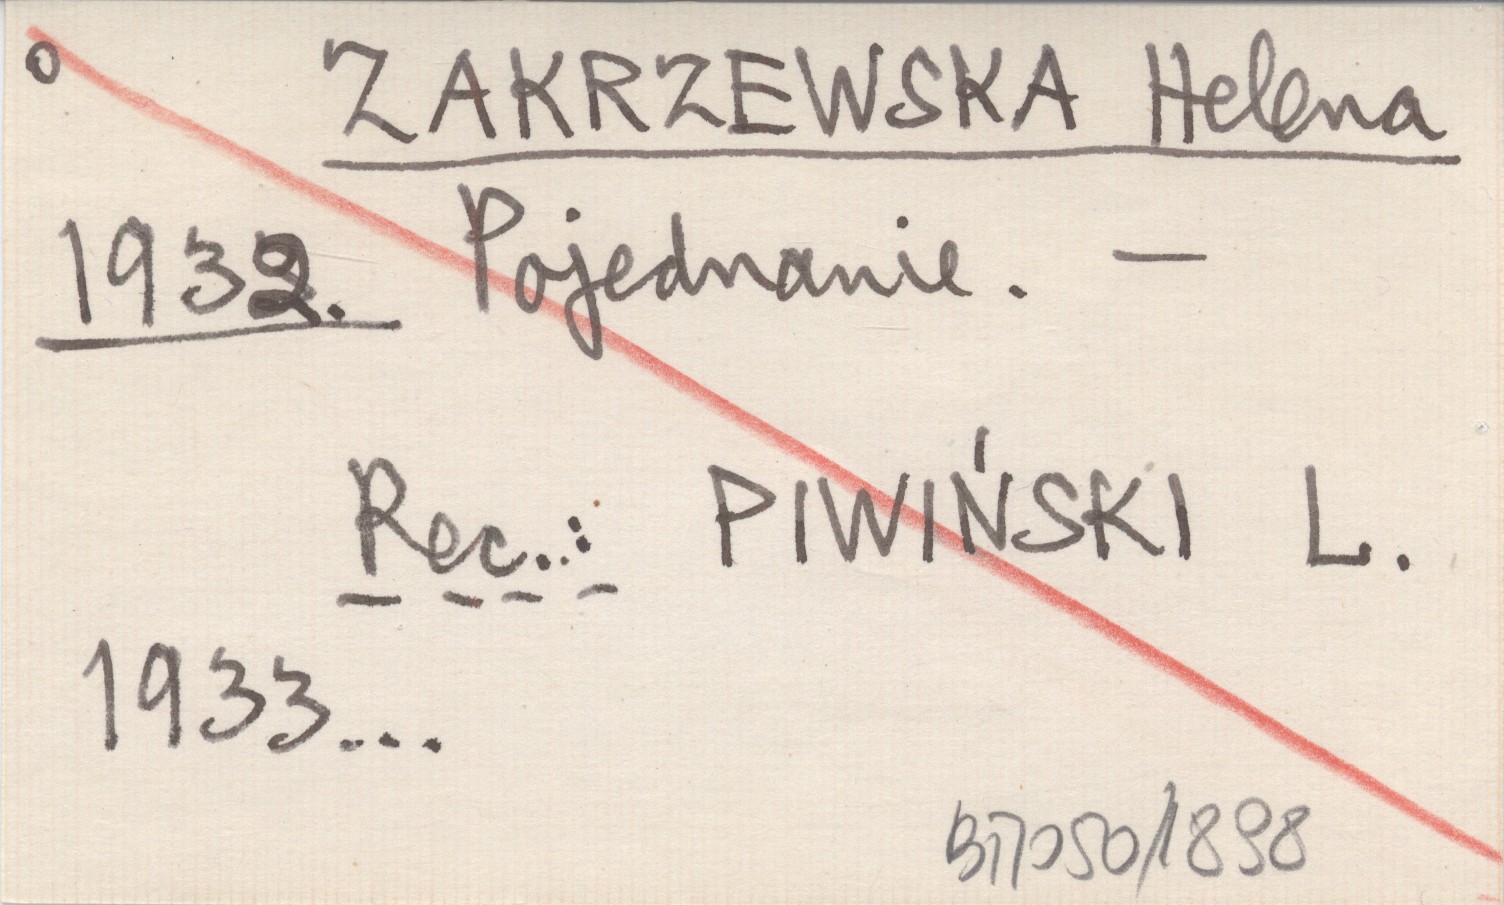 o ZAKRZEWSKA Helena
1932. Pojednanie. —
Rec.: PIWIŃSKI L.
1933...